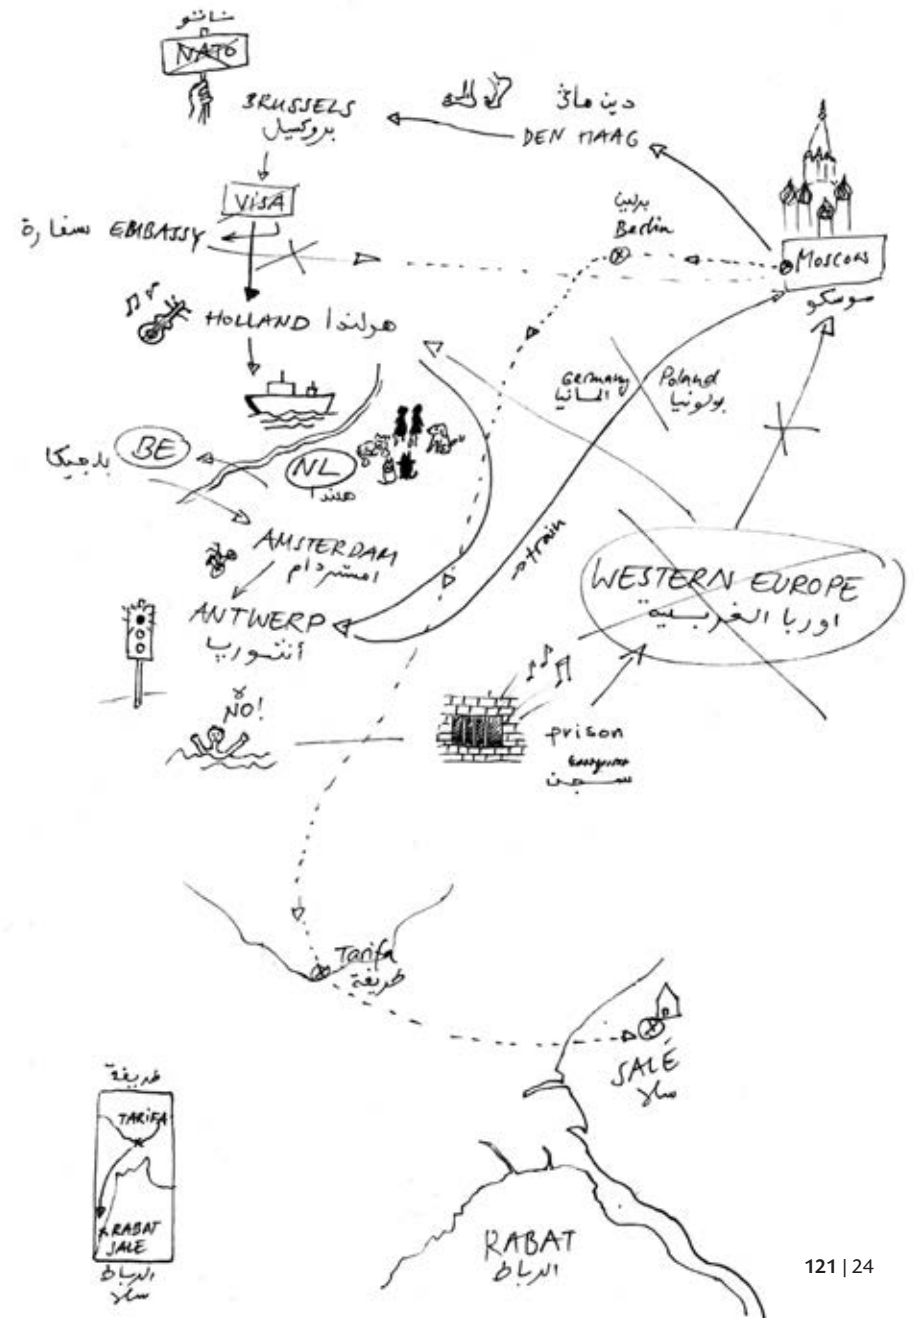 ناتو
NATO
BRUSSELS
بروكسيل
دين هاڭ
DEN HAAG
VISA
EMBASSY سفارة
برلين
Berlin
MOSCOW
موسكو
HOLLAND هولندا
Germany
المانيا
Poland
بولونيا
BE
بلجيكا
NL
هلندا
AMSTERDAM
امستردام
ANTWERP
train
WESTERN EUROPE
اوربا الغربية
لا
NO!
prison
سجن
Tarifa
طريفة
SALÉ
سلا
طريفة
TARIFA
RABAT
SALE
الرباط
سلا
RABAT
الرباط
121 | 24